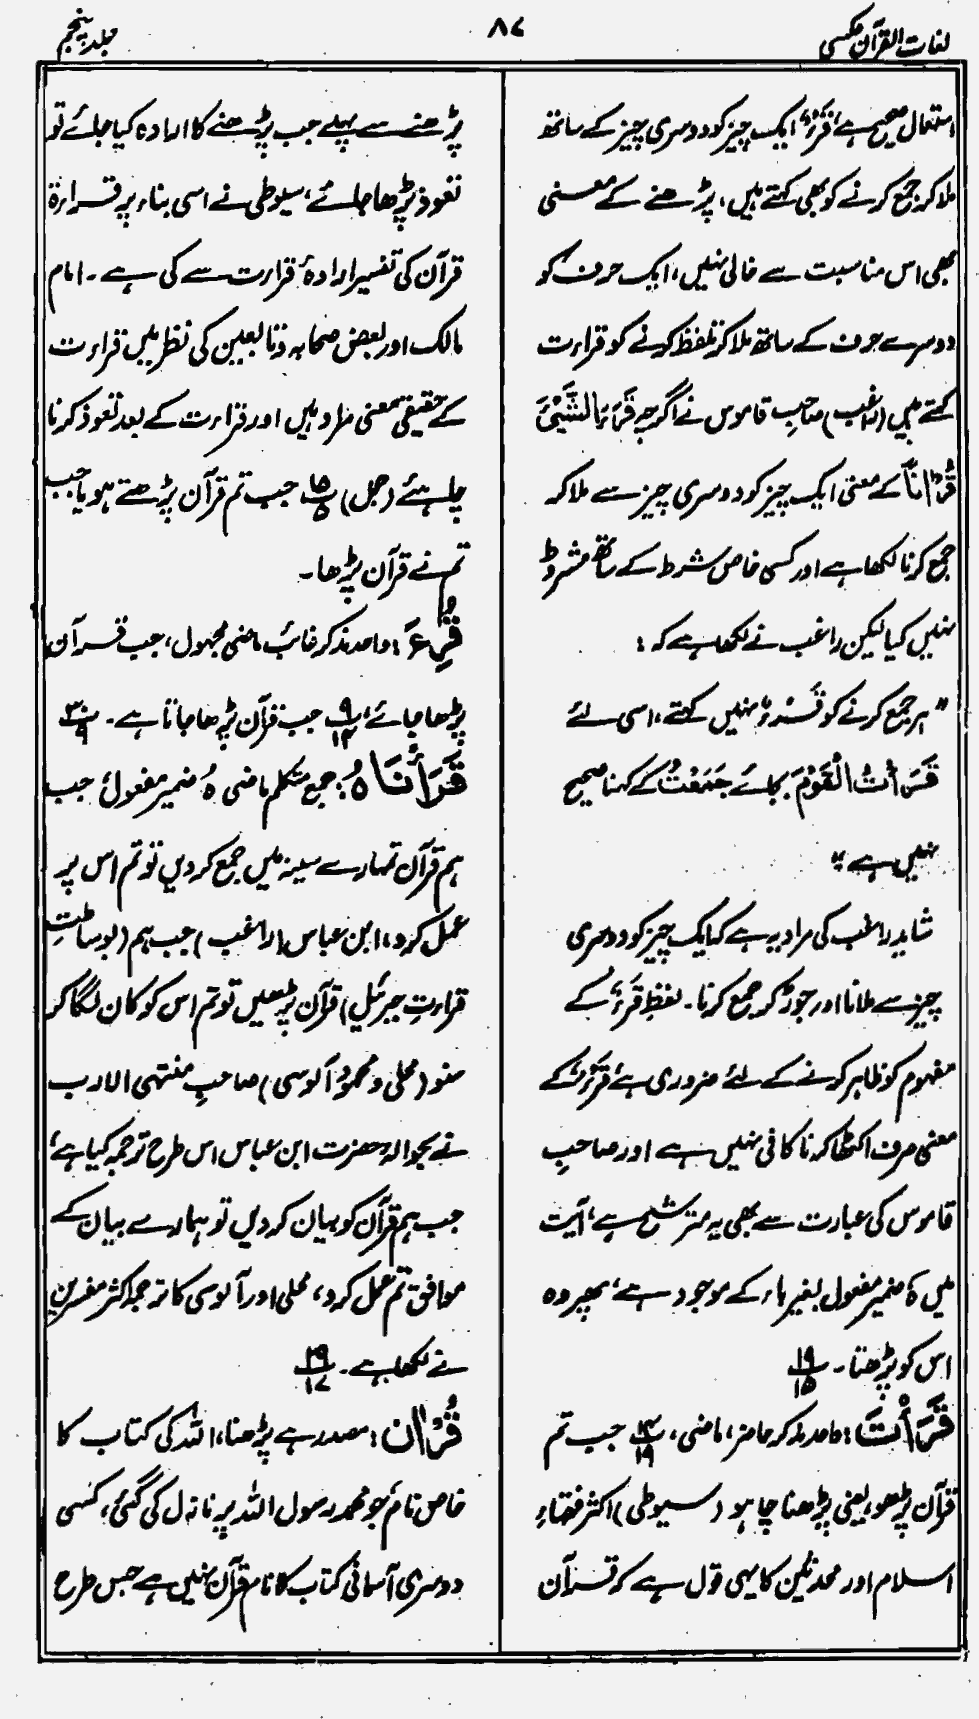 لغات القرآن عکسی
۸۷
جلد پنجم
استعمال صحیح ہے، قَرْءٌ ایک چیز کو دوسری چیز کے ساتھ
ملا کر جمع کرنے کو بھی کہتے ہیں، پڑھنے کے معنی
بھی اس مناسبت سے خالی نہیں، ایک حرف کو
دوسرے حرف کے ساتھ ملا کر تلفظ کرنے کو قراءت
کہتے ہیں (راغب) صاحبِ قاموس نے اگرچہ قَرَءَ الشَّیْئَ
قُرْاٰنًا کے معنی ایک چیز کو دوسری چیز سے ملا کر
جمع کرنا لکھا ہے اور کسی خاص شرط کے ساتھ مشروط
نہیں کیا لیکن راغب نے لکھا ہے کہ :
" ہر جمع کرنے کو قَرْءٌ نہیں کہتے، اسی لئے
قَرَءْتُ الْقَوْمَ بجائے جَمَعْتُ کے کہنا صحیح
نہیں ہے "
شاید راغب کی مراد یہ ہے کہ ایک چیز کو دوسری
چیز سے ملانا اور جوڑ کر جمع کرنا۔ لفظِ قَرْءٌ کے
مفہوم کو ظاہر کرنے کے لئے ضروری ہے، قَرْءٌ کے
معنی صرف اکٹھا کرنا کافی نہیں ہے اور صاحبِ
قاموس کی عبارت سے بھی یہ مترشح ہے، آیت
میں ہٗ ضمیر مفعول بغیر ہاء کے موجود ہے، پھر وہ
اس کو پڑھتا۔ ۱۹/۱۵
قَرَأْتَ : واحد مذکر حاضر، ماضی، ۱۴/۱۹ جب تم
قرآن پڑھو، یعنی پڑھنا چاہو (سیوطی) اکثر فقہاءِ
اسلام اور محدثین کا یہی قول ہے کہ قرآن
پڑھنے سے پہلے جب پڑھنے کا ارادہ کیا جائے تو
تعوذ پڑھا جائے، سیوطی نے اسی بناء پر قراءۃ
قرآن کی تفسیر ارادۂ قراءت سے کی ہے۔ امام
مالک اور بعض صحابہ و تابعین کی نظر میں قراءت
کے حقیقی معنی مراد ہیں اور قراءت کے بعد تعوذ کرنا
چاہئے (جمل) ۱۵/۵ جب تم قرآن پڑھتے ہو یا جب
تم نے قرآن پڑھا۔
قُرِءَ : واحد مذکر غائب ماضی مجہول، جب قرآن
پڑھا جائے، ۹/۱۴ جب قرآن پڑھا جاتا ہے۔ ۳۰/۹
قَرَأْنَاہُ : جمع متکلم ماضی ہٗ ضمیر مفعول، جب
ہم قرآن تمہارے سینہ میں جمع کر دیں تو تم اس پر
عمل کرو، ابن عباس (راغب) جب ہم (بوساطتِ
قراءتِ جبرئیل) قرآن پڑھیں تو تم اس کو کان لگا کر
سنو (محلی و محمود آلوسی) صاحبِ منتہی الارب
نے بحوالہ حضرت ابن عباس اس طرح ترجمہ کیا ہے،
جب ہم قرآن کو بیان کر دیں تو ہمارے بیان کے
موافق تم عمل کرو، محلی اور آلوسی کا ترجمہ اکثر مفسرین
نے لکھا ہے۔ ۲۹/۱۷
قُرْاٰن : مصدر ہے پڑھنا، اللہ کی کتاب کا
خاص نام، جو محمد رسول اللہ پر نازل کی گئی، کسی
دوسری آسمانی کتاب کا نام قرآن نہیں ہے جس طرح